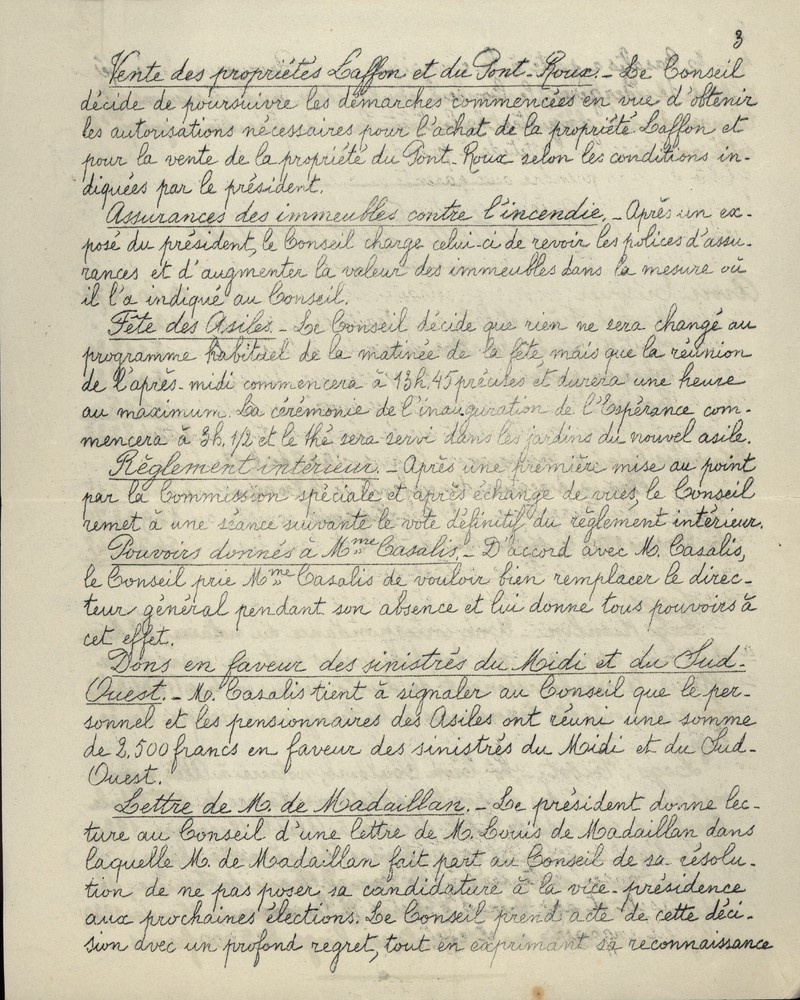 3
Vente des propriétés Laffon et du Pont-Roux. - Le Conseil
décide de poursuivre les démarches commencées en vue d'obtenir
les autorisations nécessaires pour l'achat de la propriété Laffon et
pour la vente de la propriété du Pont-Roux selon les conditions in-
diquées par le président.
Assurances des immeubles contre l'incendie. - Après un ex-
posé du président, le Conseil charge celui-ci de revoir les polices d'assu-
rances et d'augmenter la valeur des immeubles dans la mesure où
il l'a indiqué au Conseil.
Fête des Asiles. - Le Conseil décide que rien ne sera changé au
programme habituel de la matinée de la fête, mais que la réunion
de l'après-midi commencera à 13h.45 précises et durera une heure
au maximum. La cérémonie de l'inauguration de l'Espérance com-
mencera à 3h.1/2 et le thé sera servi dans les jardins du nouvel asile.
Règlement intérieur. - Après une première mise au point
par la Commission spéciale et après échange de vues, le Conseil
remet à une séance suivante le vote définitif du règlement intérieur.
Pouvoirs donnés à Mme Casalis. - D'accord avec M. Casalis,
le Conseil prie Mme Casalis de vouloir bien remplacer le direc-
teur général pendant son absence et lui donne tous pouvoirs à
cet effet.
Dons en faveur des sinistrés du Midi et du Sud-
Ouest. - M. Casalis tient à signaler au Conseil que le per-
sonnel et les pensionnaires des Asiles ont réuni une somme
de 2,500 francs en faveur des sinistrés du Midi et du Sud-
Ouest.
Lettre de M. de Madaillan. - Le président donne lec-
ture au Conseil d'une lettre de M. Louis de Madaillan dans
laquelle M. de Madaillan fait part au Conseil de sa résolu-
tion de ne pas poser sa candidature à la vice-présidence
aux prochaines élections. Le Conseil prend acte de cette déci-
sion avec un profond regret, tout en exprimant sa reconnaissance